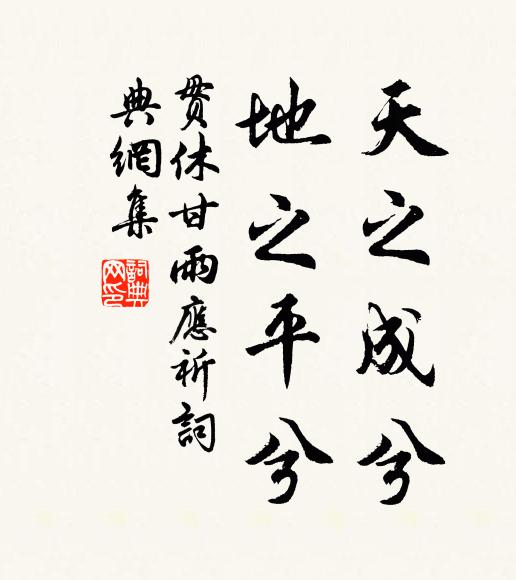 天之成兮
地之平兮
貫休甘雨應祈詞
典網集
詞典网印